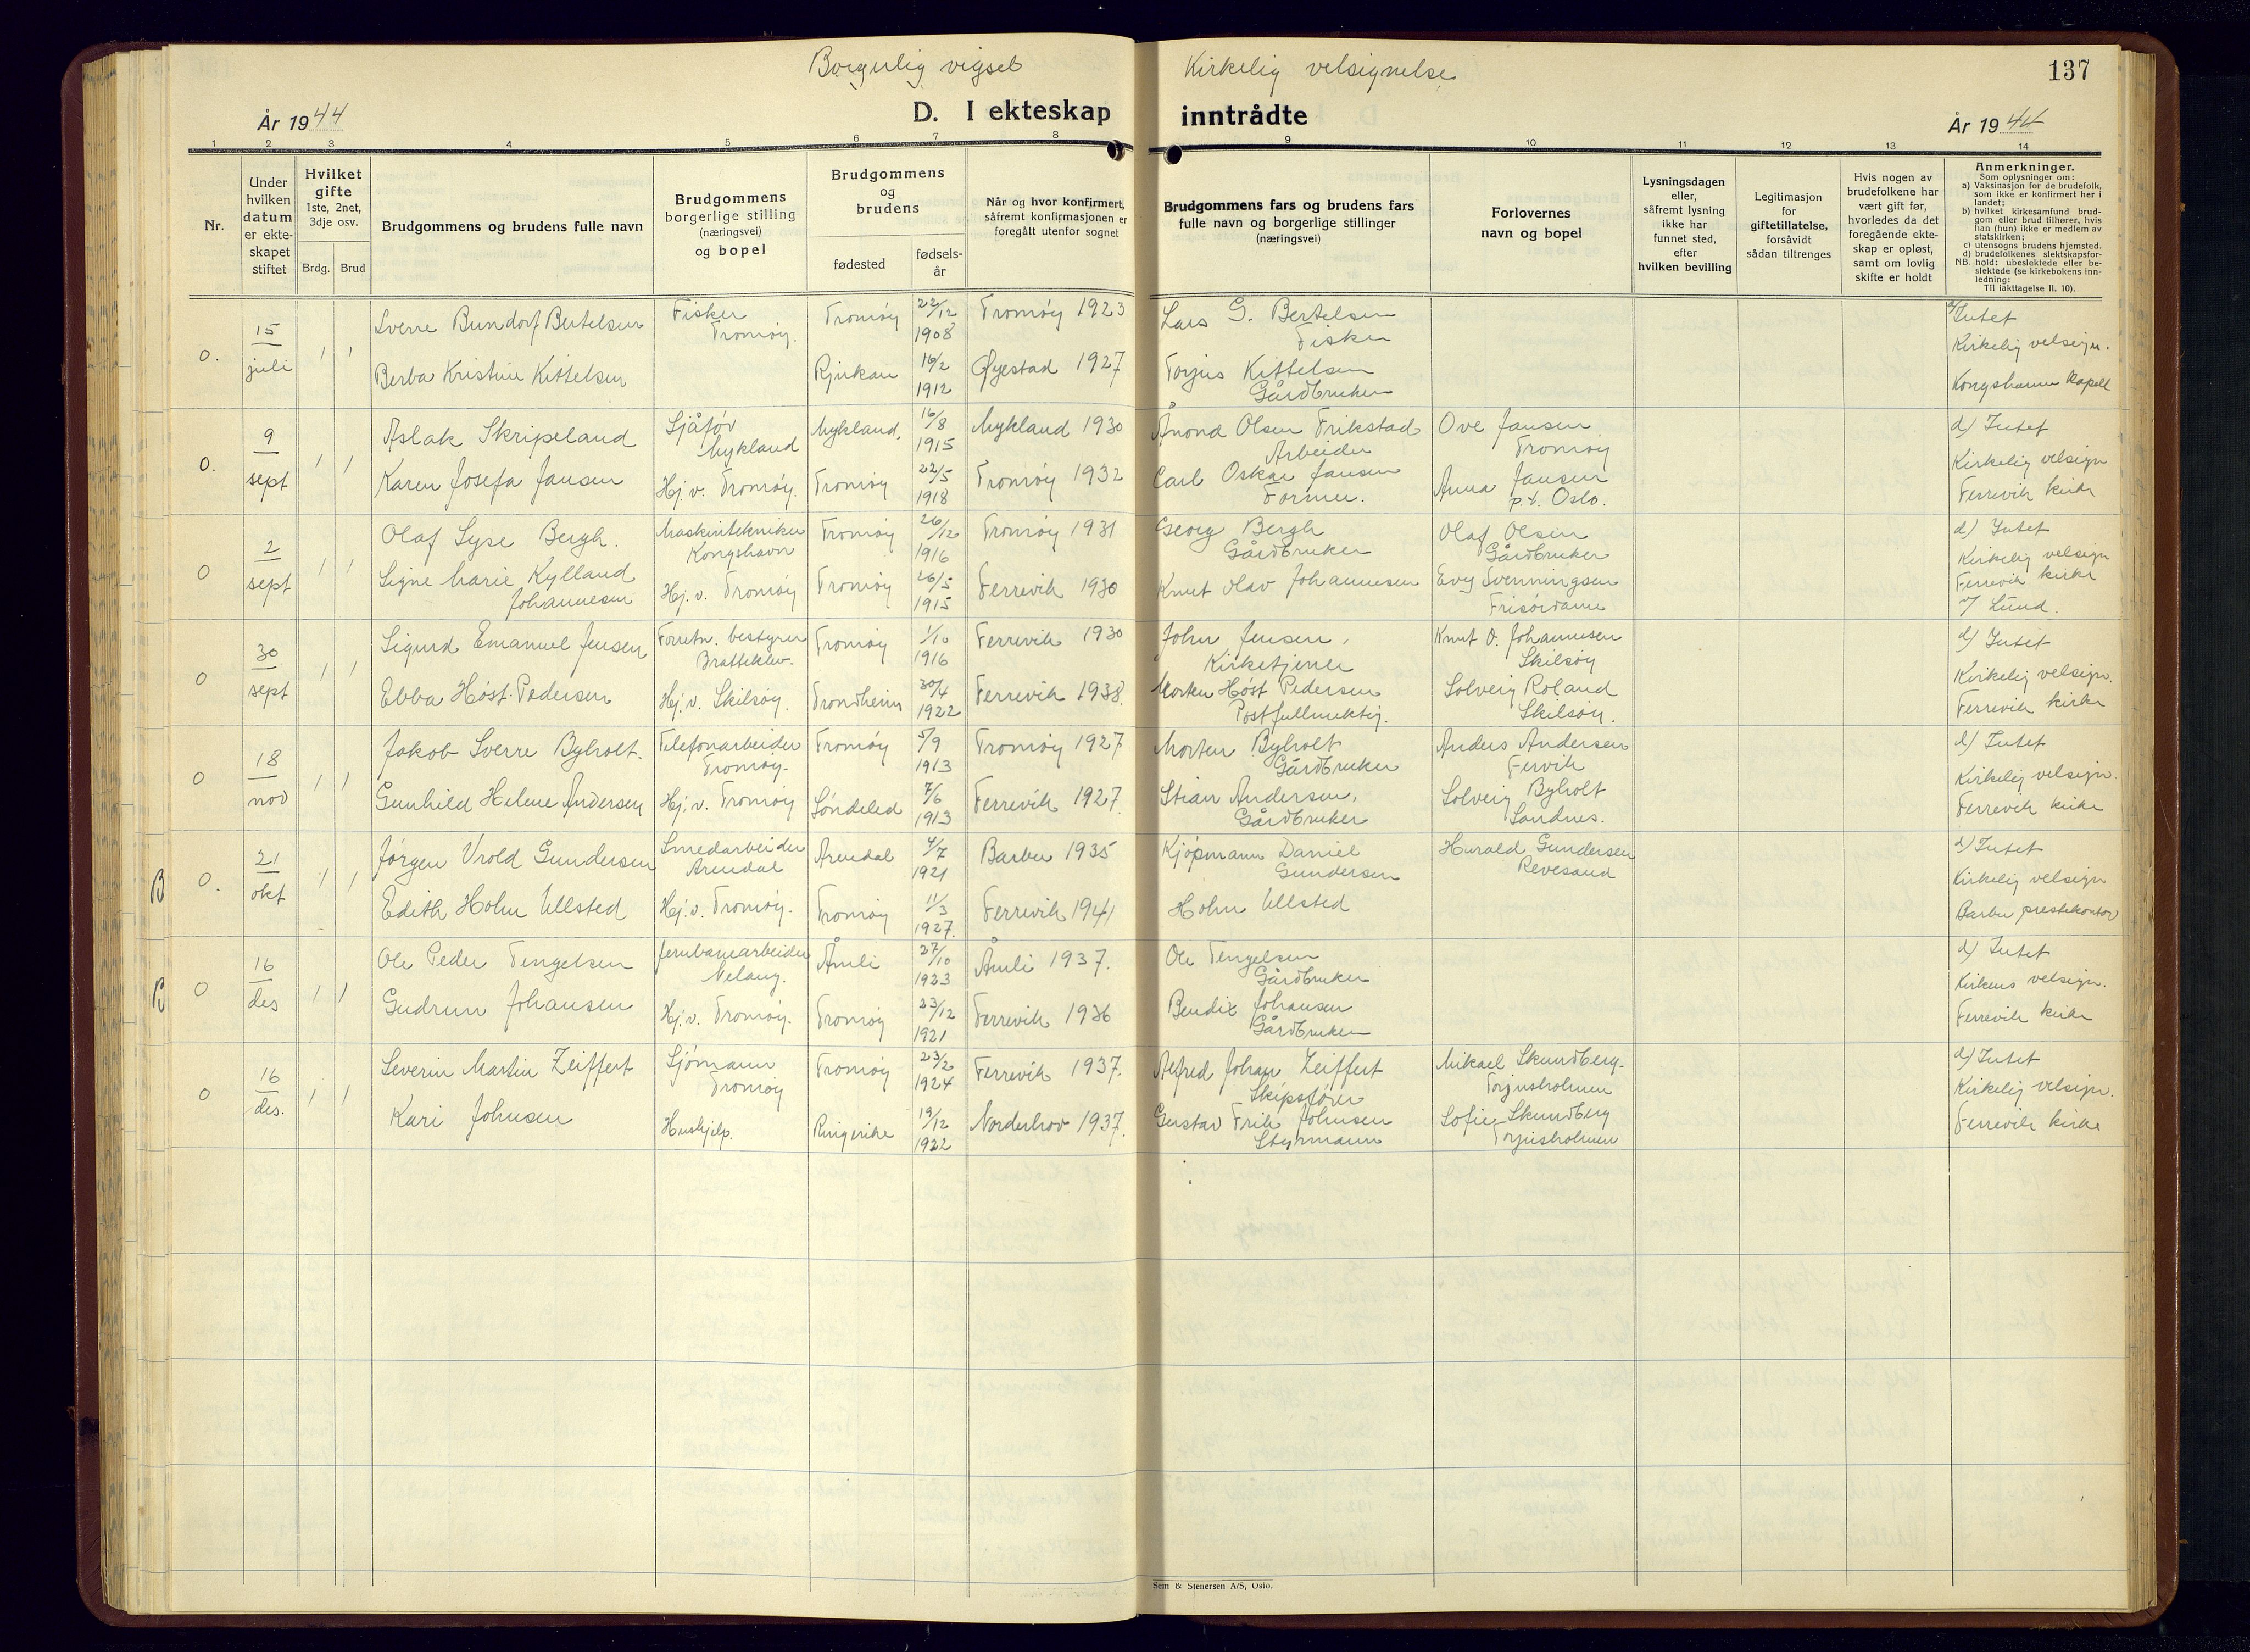 Borgerlig vigsel
Kirkelig velsignelse
137
År 1944
D. I ekteskap
inntrådte
År 1944
1
2
3
4
5
6
7
8
9
10
11
12
13
14
Nr.
Under
hvilken
datum
er ekte-
skapet
stiftet
Hvilket
gifte
1ste, 2net,
3dje osv.
Brdg.
Brud
Brudgommens og brudens fulle navn
Brudgommens
borgerlige stilling
(næringsvei)
og bopel
Brudgommens
og
brudens
fødested
fødsels-
år
Når og hvor konfirmert,
såfremt konfirmasjonen er
foregått utenfor sognet
Brudgommens fars og brudens fars
fulle navn og borgerlige stillinger
(næringsvei)
Forlovernes
navn og bopel
Lysningsdagen
eller,
såfremt lysning
ikke har
funnet sted,
efter
hvilken bevilling
Legitimasjon
for
giftetillatelse,
forsåvidt
sådan tiltrenges
Hvis nogen av
brudefolkene har
vært gift før,
hvorledes da det
foregående ekte-
skap er opløst,
samt om lovlig
skifte er holdt
Anmerkninger.
Som oplysninger om:
a) Vaksinasjon for de brudefolk,
som ikke er konfirmert her i
landet;
b) hvilket kirkesamfund brud-
gom eller brud tilhører, hvis
han (hun) ikke er medlem av
statskirken;
c) utensogns brudens hjemsted.
d) brudefolkenes slektskapsfor-
NB. hold: ubeslektede eller be-
slektede (se kirkebokens inn-
ledning:
Til iakttagelse II. 10).
0.
15
juli
1 1
Sverre Bundorf Bertelsen
Fisker
Tromøy.
Tromøy
22/12
1908
Tromøy 1923
Lars G. Bertelsen
Fisker
d) Intet
Kirkelig velsign.
Kongshavn kapell
Berba Kristine Kittelsen
Rjukan
16/2
1912
Øyestad 1927
Torjus Kittelsen
Gårdbruker
0.
9
sept
1 1
Aslak Skripeland
Sjåfør
Mykland
Mykland.
16/8
1915
Mykland 1930
Ånond Olsen Trikstad
Arbeider
Ove Jansen
Tromøy
d) Intet
Kirkelig velsign
Færrevik kirke
Karen Josefa Jansen
Hj. v. Tromøy.
Tromøy
22/5
1918
Tromøy 1932
Carl Oskar Jansen
Former.
Anna Jansen
p.t. Oslo.
0
2
sept
1 1
Olaf Lyse Bergh.
Maskintekniker
Kongshavn
Tromøy
26/12
1916
Tromøy 1931
Georg Bergh
Gårdbruker
Olaf Olsen
Gårdbruker
d) Intet
Kirkelig velsign
Færrevik kirke
v/ Lund.
Signe Marie Kylland
Johannesen
Hj. v. Tromøy
Tromøy
26/5
1915
Færrevik 1930
Knut Olav Johannesen
Evy Svenningsen
Frisørdame
0
30
sept
1 1
Sigurd Emanuel Jensen
Forretn. bestyrer
Bratteklev.
Tromøy
1/10
1916
Færrevik 1930
John Jensen,
Kirketjener
Knut O. Johannesen
Skilsøy
d) Intet
Kirkelig velsign.
Færrevik kirke
Ebba Høst-Pedersen
Hj. v. Skilsøy.
Trondheim
30/4
1922
Færrevik 1938.
Morten Høst Pedersen
Postfullmektig.
Solveig Roland
Skilsøy.
0
18
nov
1 1
Jakob Sverre Byholt.
Telefonarbeider
Tromøy.
Tromøy
5/9
1913
Tromøy 1927
Morten Byholt
Gårdbruker
Anders Andersen
Fervik
d) Intet
Kirkelig velsign.
Færrevik kirke
Gunhild Helene Andersen
Hj. v. Tromøy
Søndeled
7/6
1913
Færrevik 1927.
Stian Andersen,
Gårdbruker
Solveig Byholt
Sandnes.
B
0.
21
okt
1 1
Jørgen Vrold Gundersen
Smedarbeider
Arendal
Arendal
4/7
1921
Barbu 1935
Kjøpmann Daniel
Gundersen
Harald Gundersen
Revesand
d) Intet
Kirkelig velsign
Barbu prestekontor
Edith Holm Ullsted
Hj. v. Tromøy.
Tromøy
11/3
1927.
Færrevik 1941
Holm Ullsted
B
0
16
des
1 1
Ole Peder Tengelsen
Jernbanearbeider
Nelaug.
Åmli
27/10
1923
Åmli 1937.
Ole Tengelsen
Gårdbruker
d) Intet
Kirkens velsign.
Færrevik kirke
Gudrun Johansen
Hj. v. Tromøy.
Tromøy
23/12
1921
Færrevik 1936
Bendix Johansen
Gårdbruker
0
16
des.
1 1
Severin Martin Zeiffert
Sjømann
Tromøy
Tromøy
23/2
1924
Færrevik 1937.
Alfred Johan Zeiffert
Skipsfører
Mikael Skundberg.
Torjusholmen
d) Intet
Kirkelig velsign.
Færrevik kirke
Kari Johnsen
Hushjelp.
Ringerike
19/12
1922
Norderhov 1937.
Gustav Frik Johnsen
Styrmann
Sofie Skundberg
Torjusholmen
Sem & Stenersen A/S, Oslo.